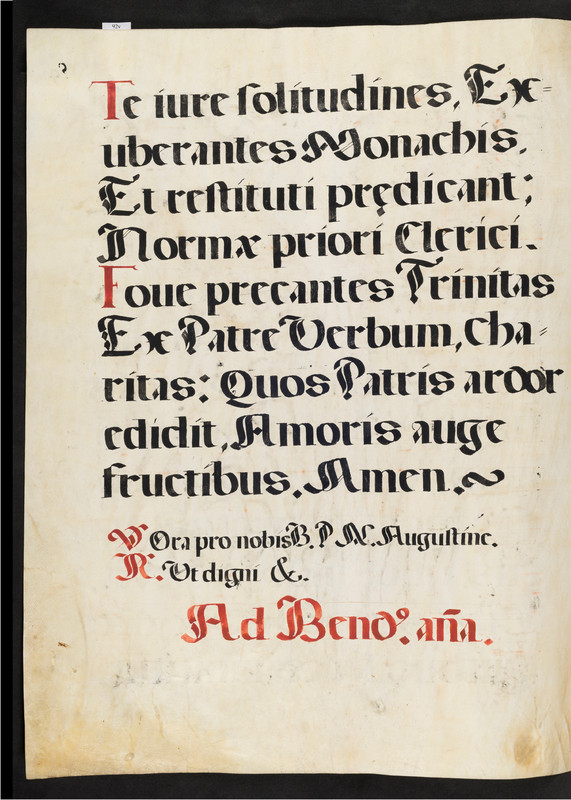 92v
Te iure ſolitudines, Ex=
uberantes Monachis,
Et reſtituti prędicant;
Normæ priori Clerici.
Foue precantes Trinitas
Ex Patre Verbum, Cha=
ritas: Quos Patris ardor
edidit, Amoris auge
fructibus. Amen.
℣ Ora pro nobis B. P. N. Auguſtine.
℟. Ut digni &.
Ad Bendo. aña.